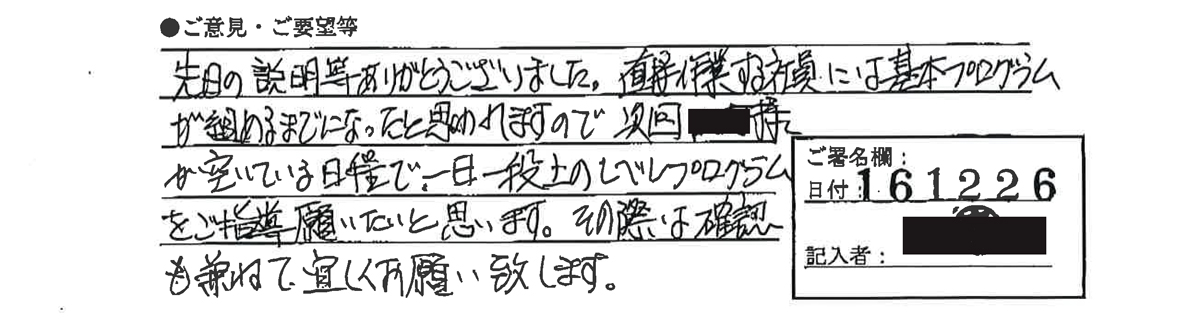 ●ご意見・ご要望等
先日の説明等ありがとうございました。直接作業する社員には基本プログラム
が組めるまでになったと思われますので次回 様
が空いている日程で、一日一段上のレベルプログラム
をご指導願いたいと思います。その際は確認
も兼ねて宜しくお願い致します。
ご署名欄:
日付:161226
記入者: